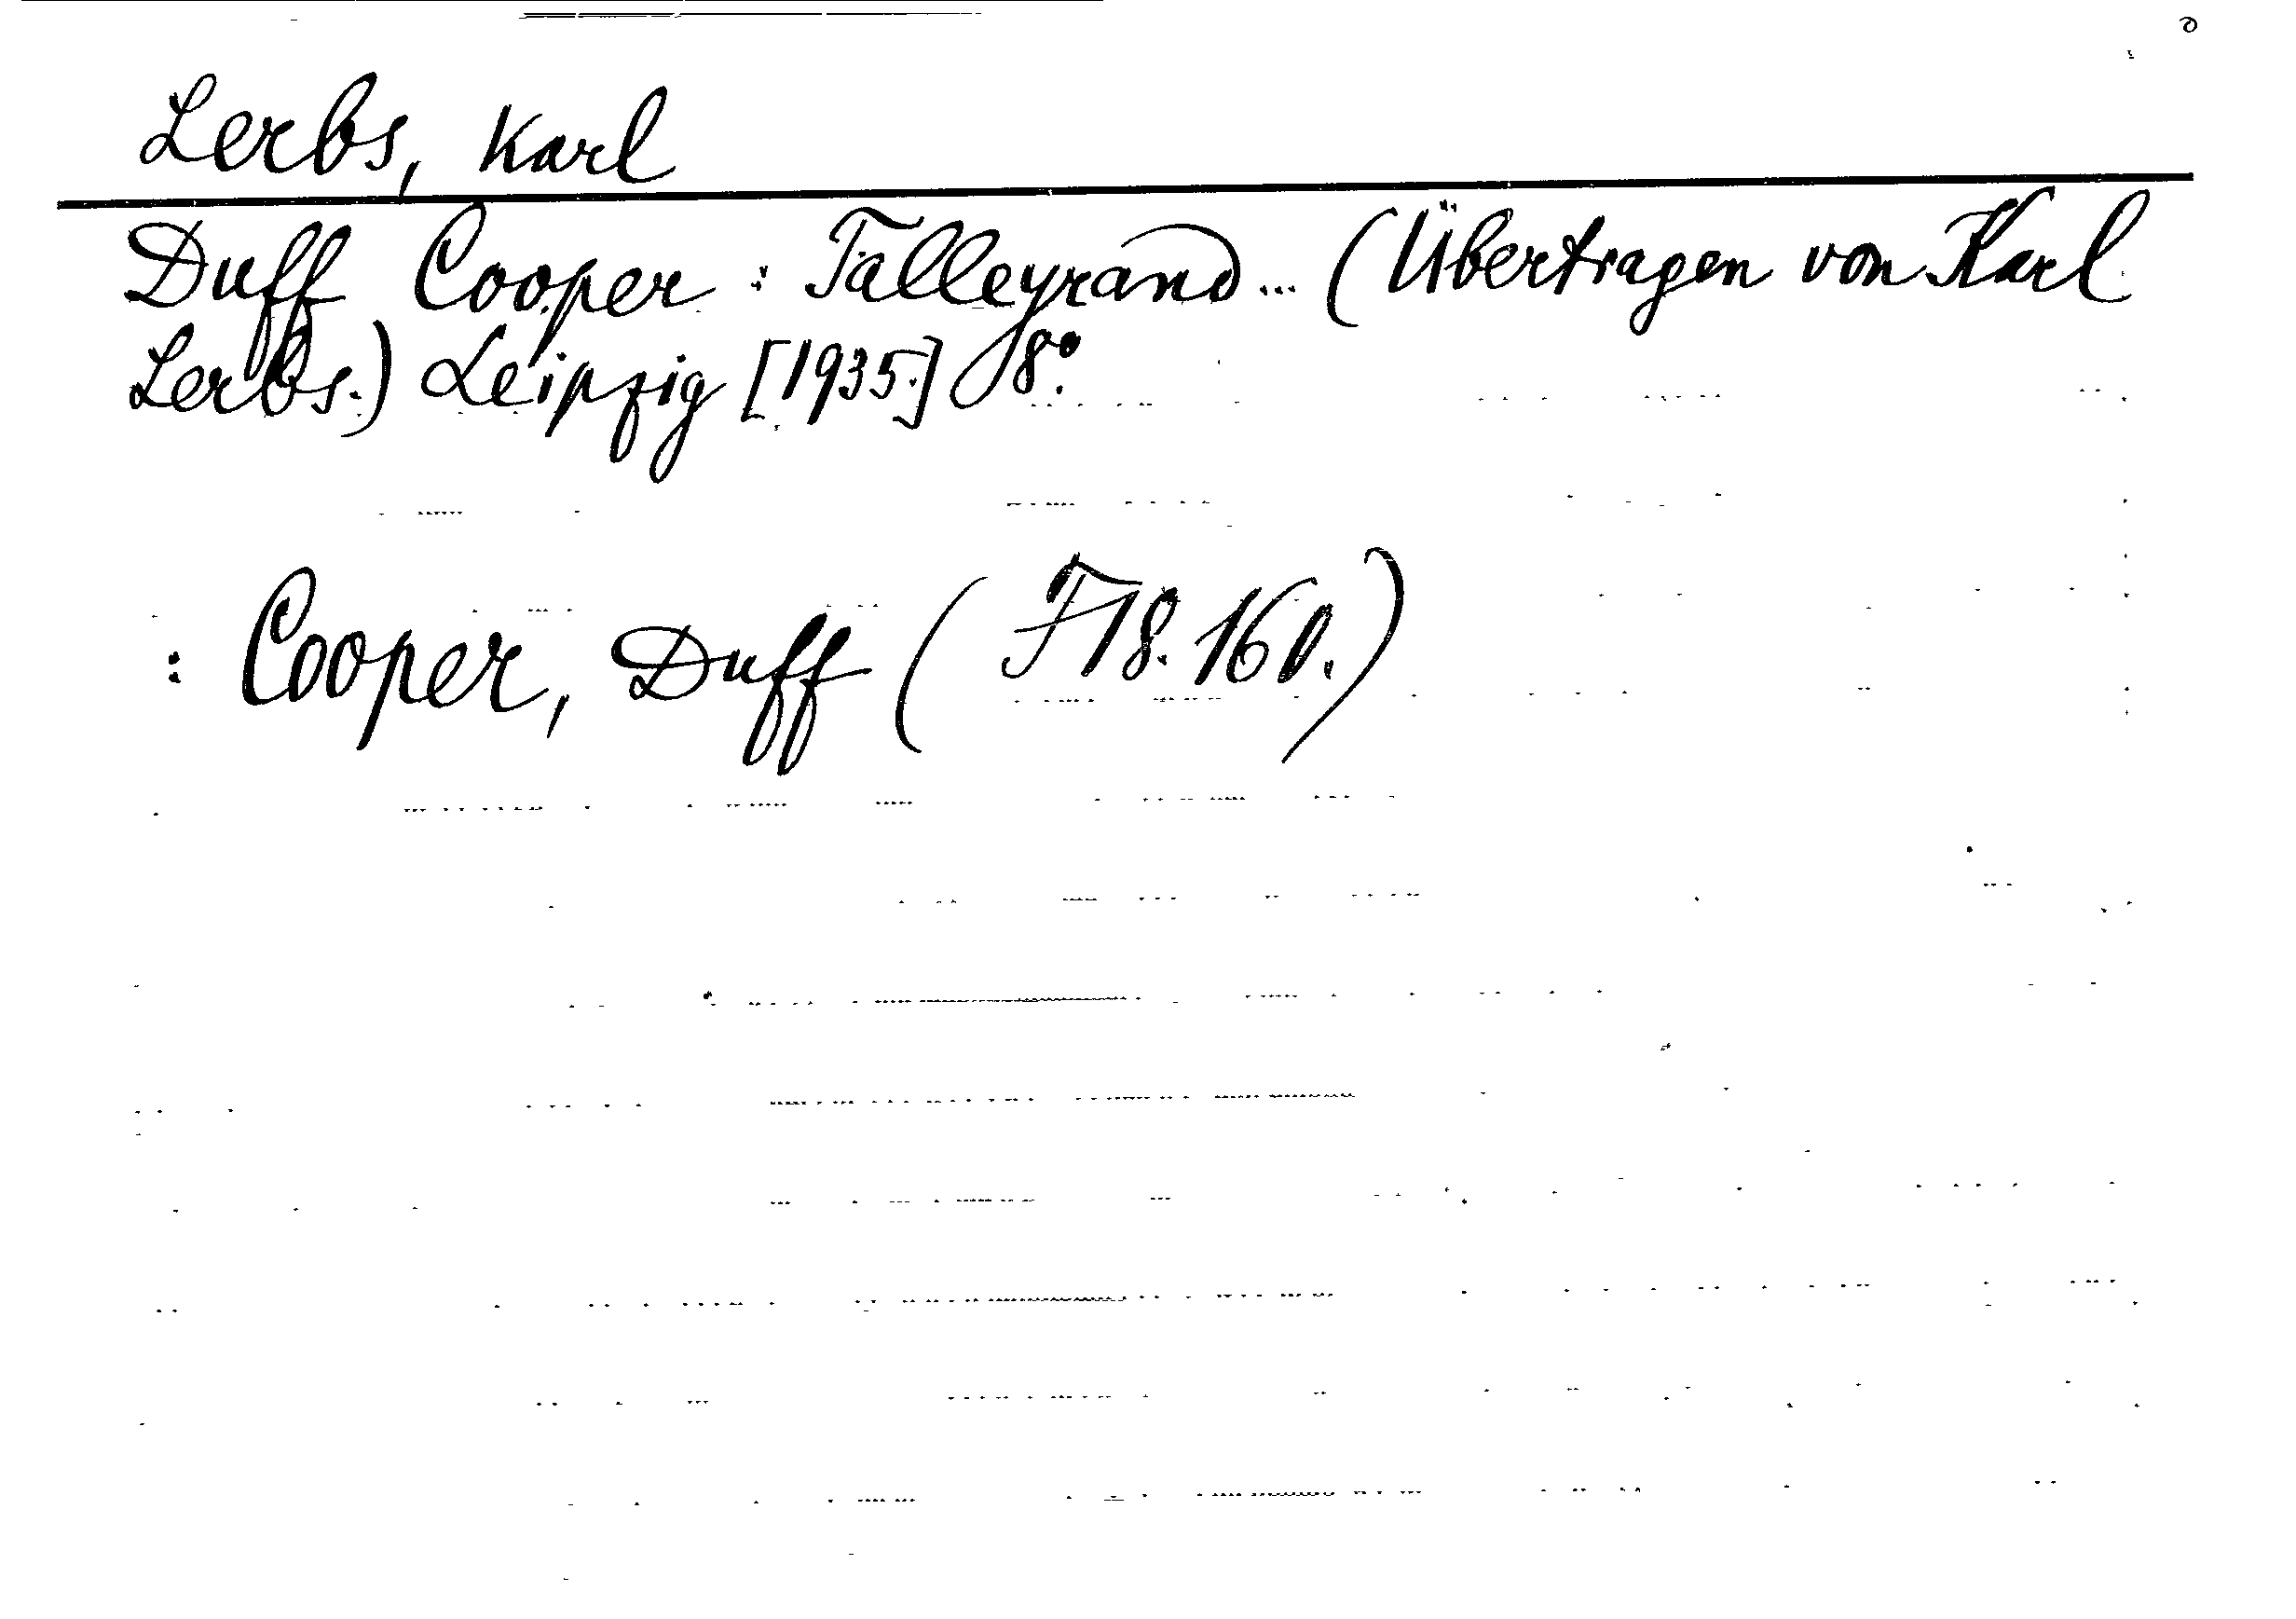 Lerbs, Karl
Duff Cooper: Talleyrand... (Übertragen von Karl
Lerbs.) Leipzig [1935.] 8°.
: Cooper, Duff (F18.160.)